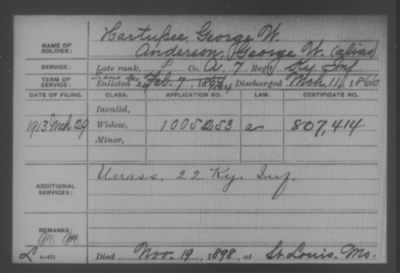 NAME OF SOLDIER:
Hartupee, George W.
Anderson, George W. (alias)
SERVICE:
Late rank, P Co. A, 7 Reg't Ky. Inf
TERM OF SERVICE:
Enlisted Feb. 7, 1864 Discharged Mch. 11, 186
DATE OF FILING. CLASS. APPLICATION NO. LAW. CERTIFICATE NO.
Invalid,
1913 Mch 29 Widow, 1005253 807,414
Minor,
ADDITIONAL SERVICES:
Unass. 22 Ky. Inf.
REMARKS:
Died Nov. 19, 1898, at St. Louis. Mo.